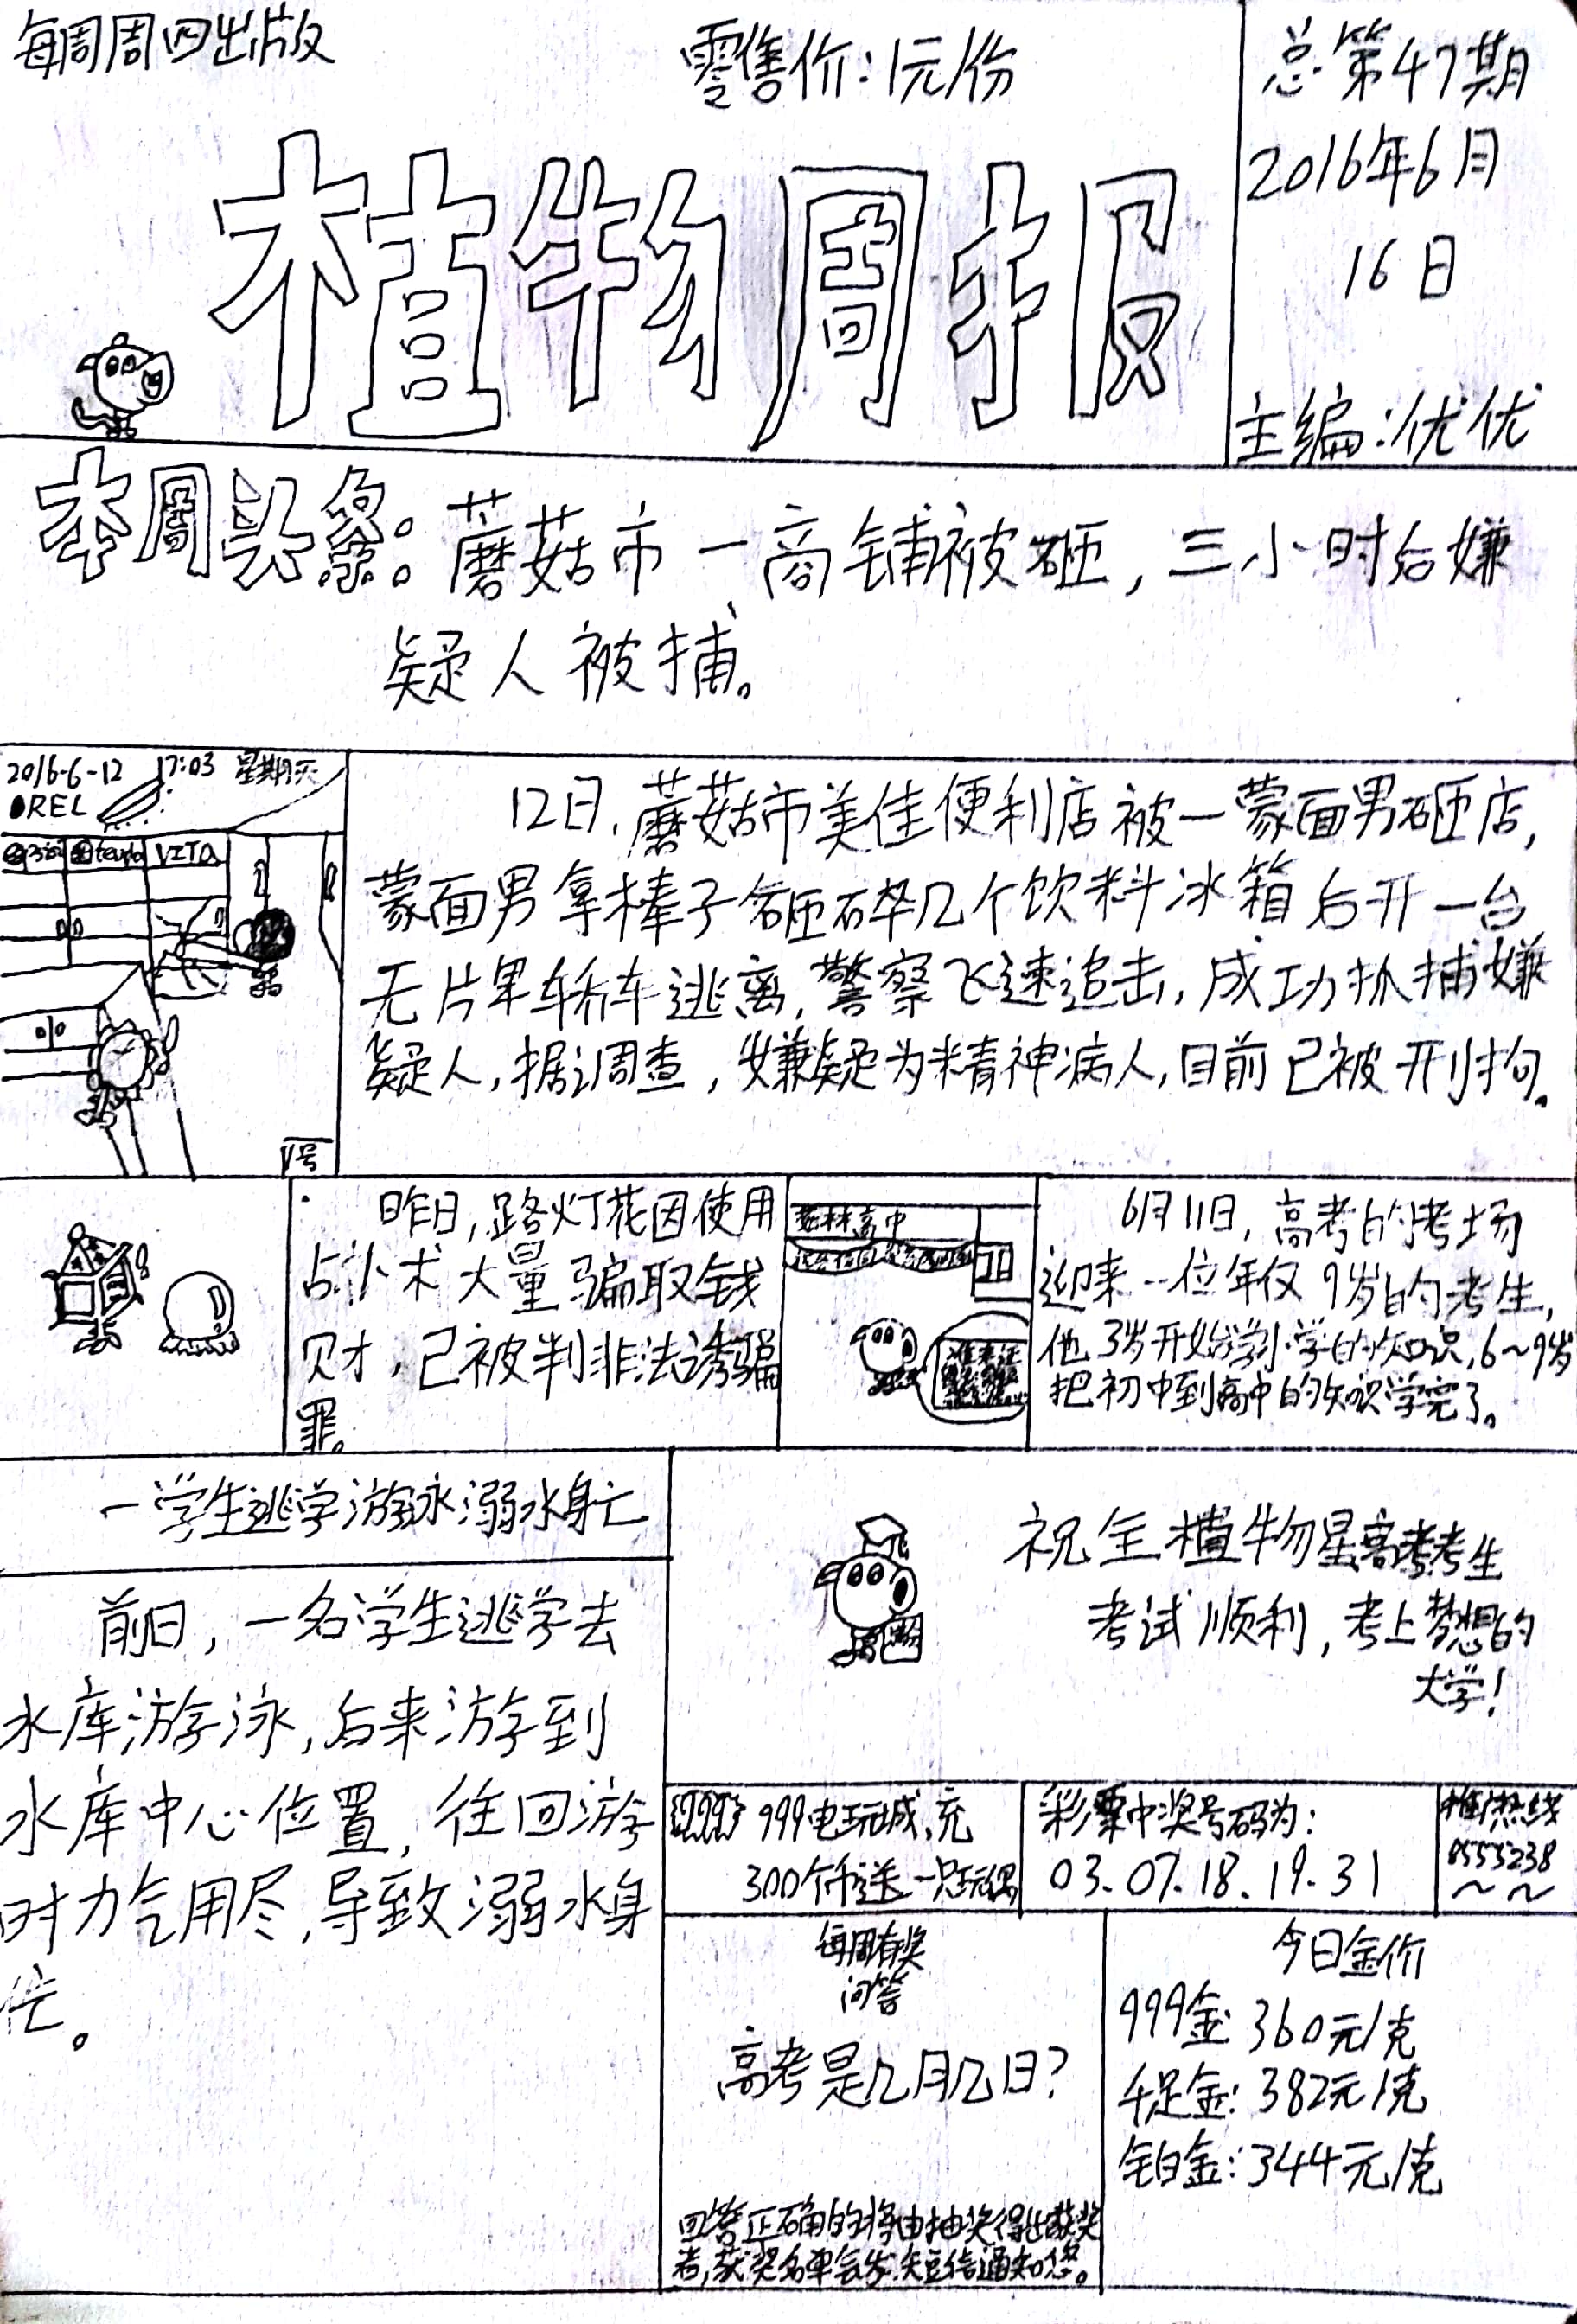 每周周四出版
零售价：1元/份
总第47期
2016年6月
16日
植物周报
主编：优优
本周头条：蘑菇市一商铺被砸，三小时后嫌
疑人被捕。
2016-6-12 17:03 星期天
REC
VITA
1号
12日，蘑菇市美佳便利店被一蒙面男砸店，
蒙面男拿棒子砸碎几个饮料冰箱后开一台
无片牌轿车逃离，警察飞速追击，成功抓捕嫌
疑人，据调查，嫌疑为精神病人，目前已被刑拘。
昨日，路灯花因使用
占卜术大量骗取钱
财，已被判非法诱骗
罪。
高中
准考证
6月11日，高考的考场
迎来一位年仅9岁的考生，
他3岁开始学小学的知识，6～9岁
把初中到高中的知识学完了。
一学生逃学游泳溺水身亡
前日，一名学生逃学去
水库游泳，后来游到
水库中心位置，往回游
时力气用尽，导致溺水身
亡。
祝全植物星高考考生
考试顺利，考上梦想的
大学！
999电玩城，充
300个币送一只玩偶
彩票中奖号码为：
03.07.18.19.31
热线
8555238
～～
每周有奖
问答
高考是几月几日？
回答正确的将由抽奖得出获奖
者，获奖名单会发短信通知您。
今日金价
999金：360元/克
千足金：382元/克
铂金：344元/克